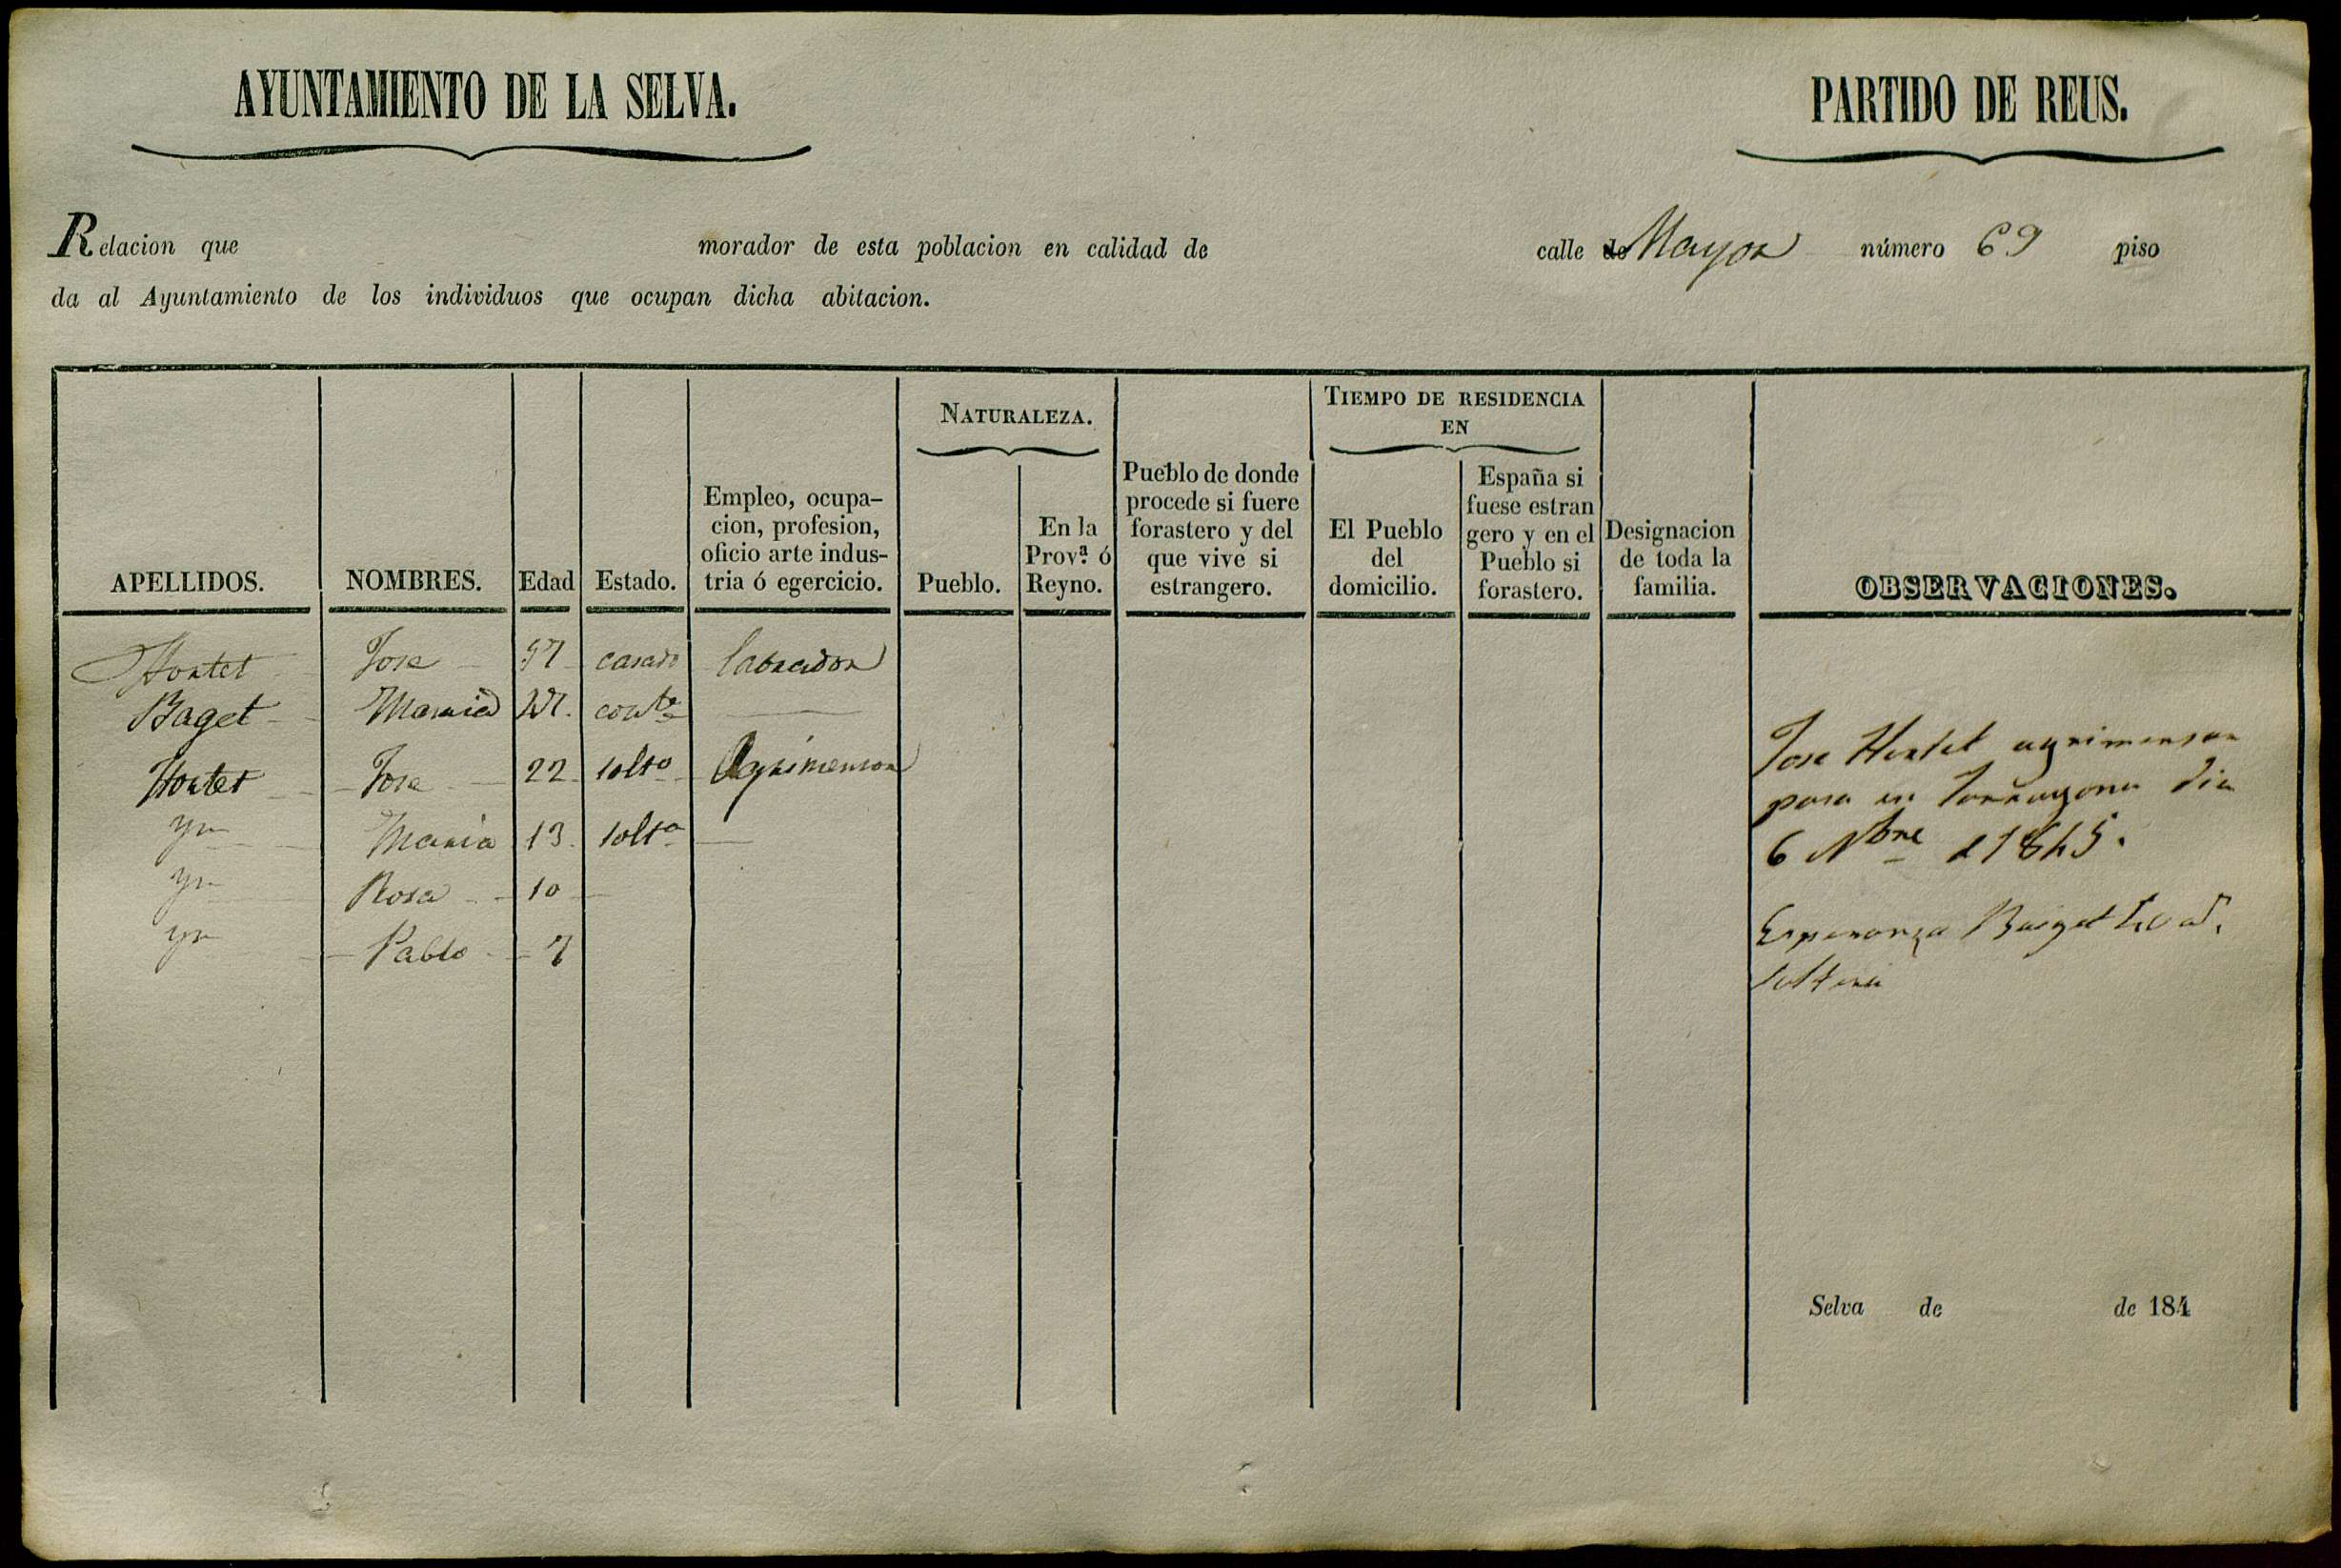 AYUNTAMIENTO DE LA SELVA.
PARTIDO DE REUS.
Relacion que morador de esta poblacion en calidad de calle de Mayor número 69 piso
da al Ayuntamiento de los individuos que ocupan dicha abitacion.
APELLIDOS.
NOMBRES.
Edad
Estado.
Empleo, ocupa-
cion, profesion,
oficio arte indus-
tria ó egercicio.
NATURALEZA.
Pueblo.
En la
Prov.ª ó
Reyno.
Pueblo de donde
procede si fuere
forastero y del
que vive si
estrangero.
TIEMPO DE RESIDENCIA
EN
El Pueblo
del
domicilio.
España si
fuese estran
gero y en el
Pueblo si
forastero.
Designacion
de toda la
familia.
OBSERVACIONES.
Hortet Jose 57 casado labrador
Baget Maria
Hortet Jose 22 solto Agrimensor
Yn Maria 13 solta
Yn Rosa 10
Yn Pablo 7
Jose Hortet agrimensor
pasa en Tarragona dia
6 Nbre d 1845.
Esperanza Baget
soltera
Selva de de 184